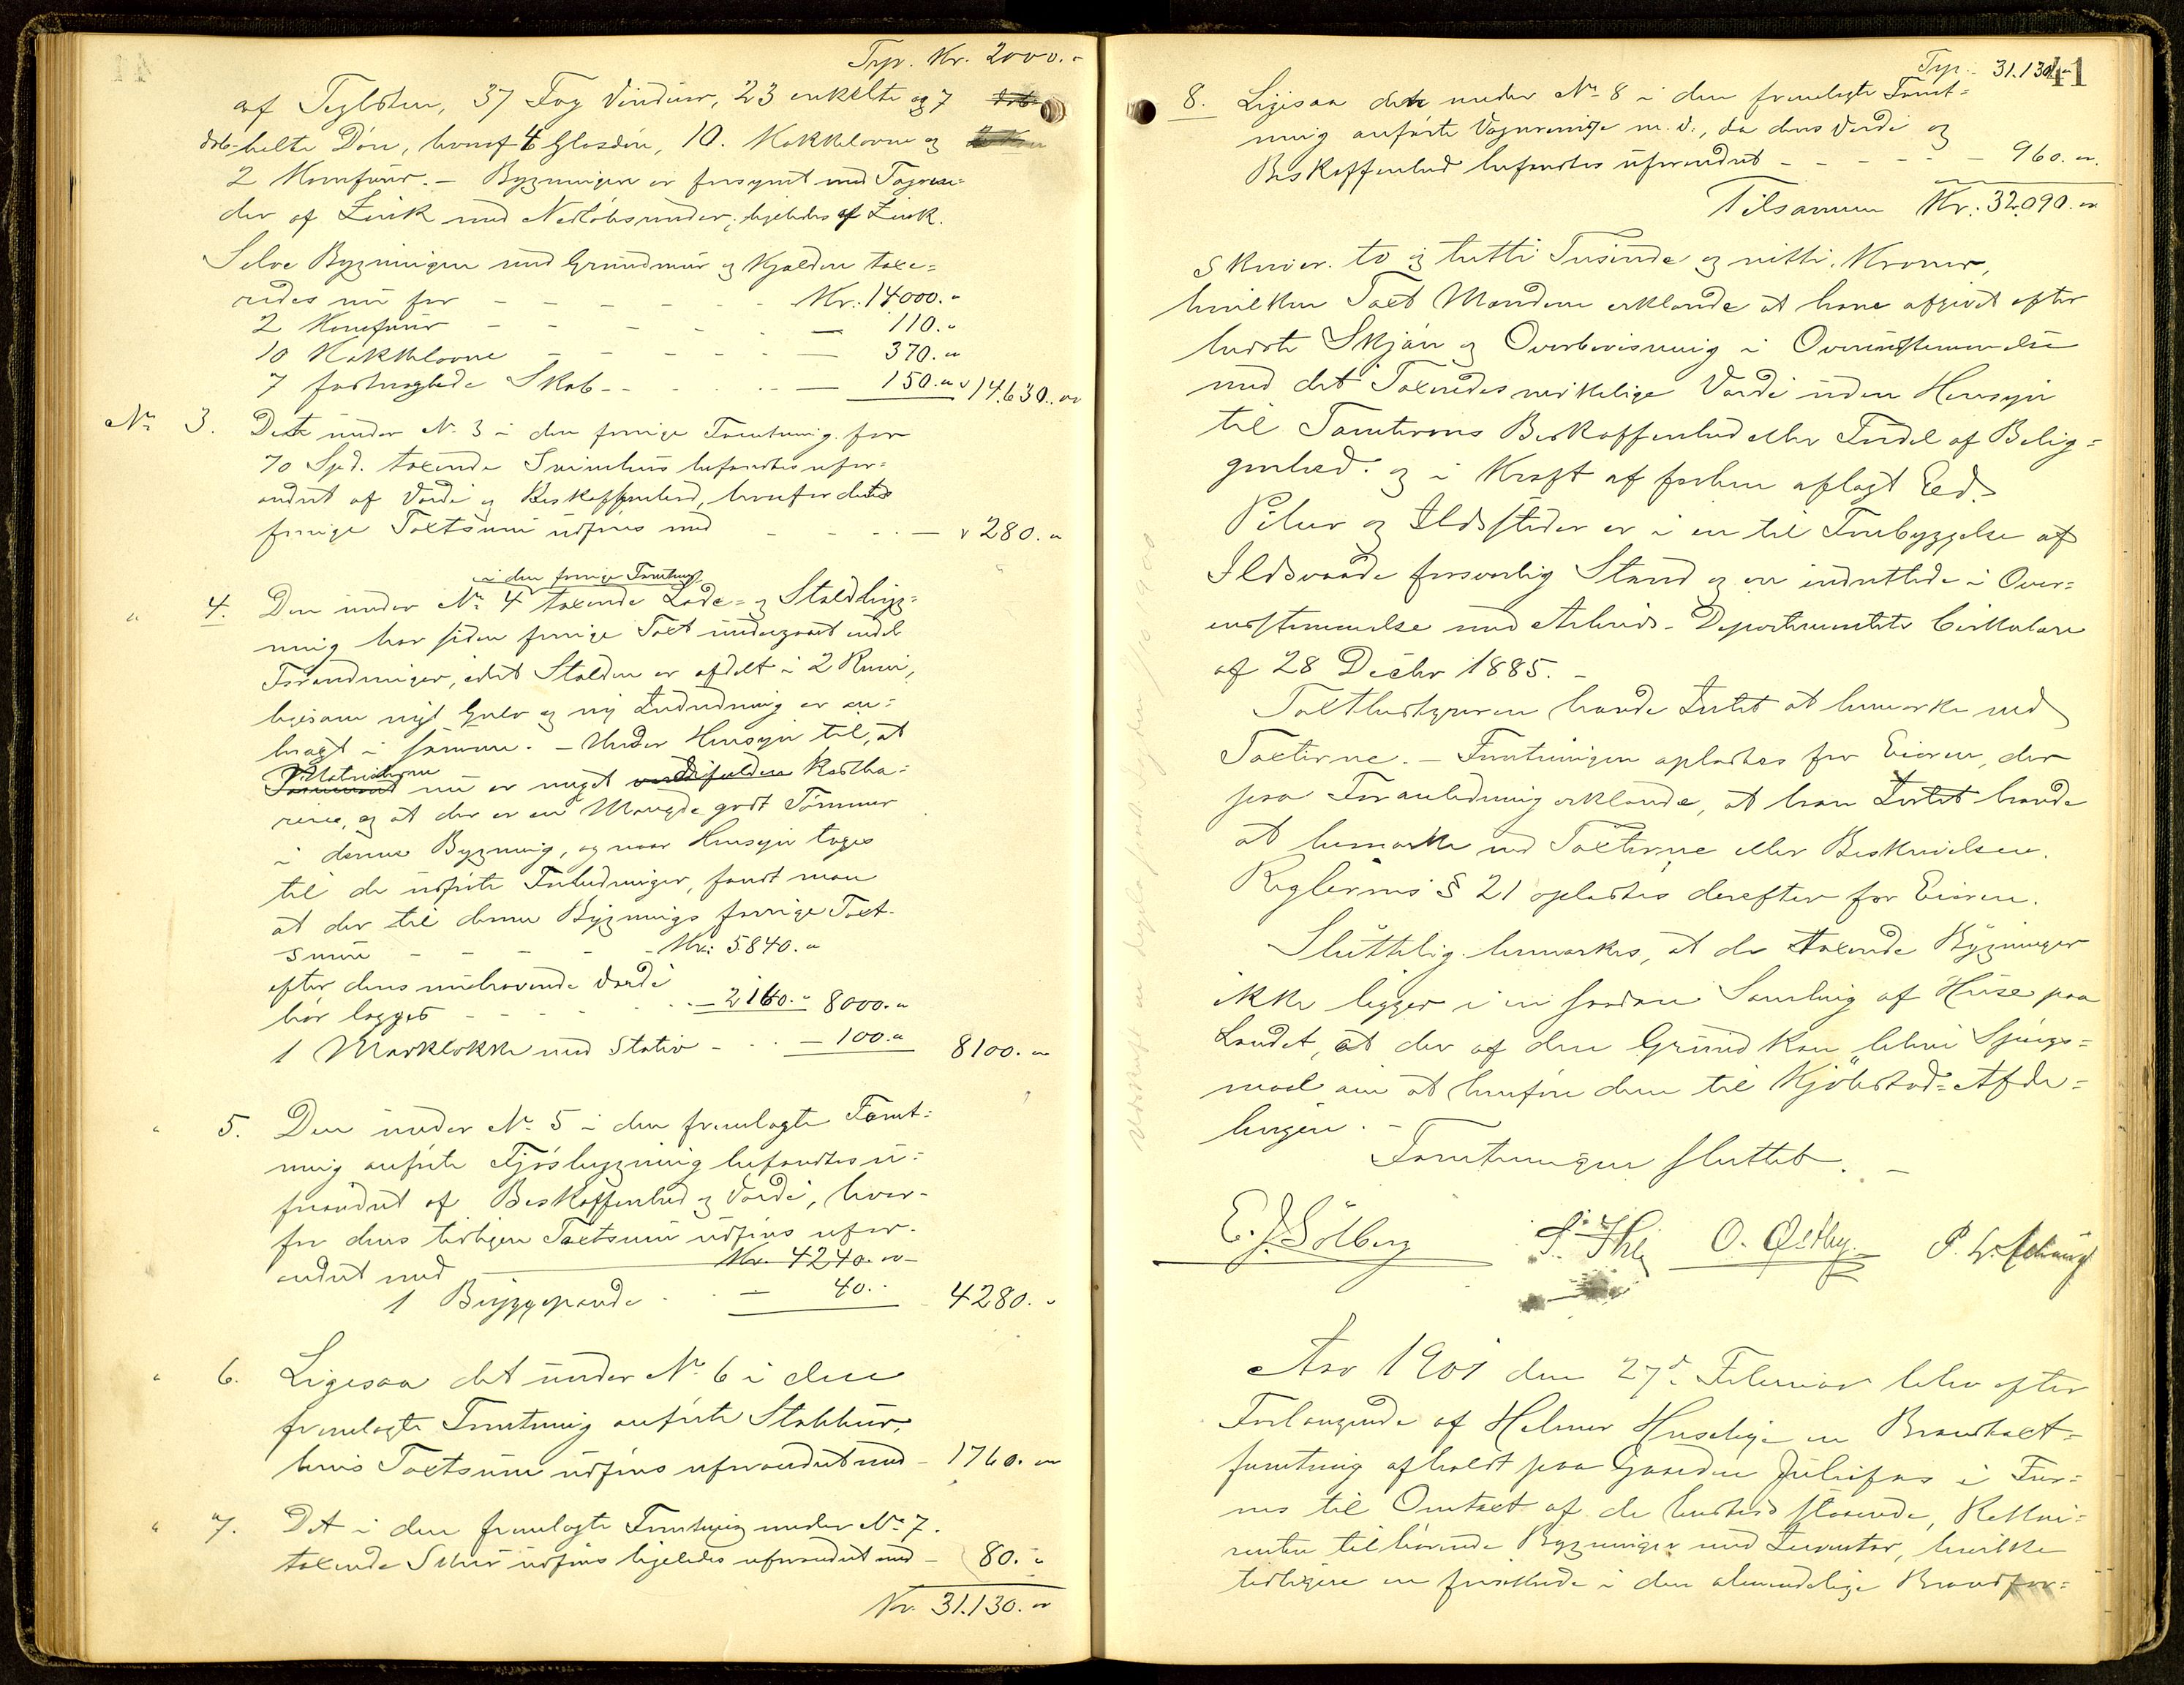 Trp. Kr. 2000.-
af Teglsten, 37 Fag Vinduer, 23 enkelte og 7
dobbelte Döre, hvoraf 4 Glasdöre, 10. Kakkelovne og
2 Komfurer. - Bygningen er forsynet med Tagren-
der af Zink med Nedlöbsrender, ligeledes af Zink.
Selve Bygningen med Grundmur og Kjeldere taxe-
redes nu for - - - Kr. 14000.-
2 Komfurer - - - 110.-
10 Kakkelovne - - - 370.-
7 fastnaglede Skab - - - 150.- 14.630.-
No 3. Dette under No 3 i den forrige Forretning for
70 Spd. taxerede Svinehus befandtes ufor-
andret af Værdi og Beskaffenhed, hvorfor dettes
forrige Taxtsum udföres med - - - 280.-
" 4. Den under No 4 i den forrige Forretning taxerede Lade- og Staldbyg-
ning har siden forrige Taxt undergaaet endel
Forandringer, idet Stalden er afdelt i 2 Rum,
ligesom nyt Gulv og ny Indredning er an-
bragt i samme. - Under Hensyn til, at
Materialerne nu er meget værdifuldere kostba-
rere, og at der er en Mængde godt Tömmer
i denne Bygning, og naar Hensyn tages
til de udförte Forbedringer, fandt man
at der til denne Bygnings forrige Taxt-
sum - - - Kr. 5840.-
efter dens nuhavende Værdi
bör lægges - - - 2160.- 8000.-
1 Madklokke med Stativ - - 100.- 8100.-
" 5. Den under No 5 i den fremlagte Forret-
ning anförte Fjösbygning befandtes u-
forandret af Beskaffenhed og Værdi, hvor-
for dens tidligere Taxtsum udföres ufor-
andret med Kr. 4240.-
1 Bryggepande - - 40.- 4280.-
" 6. Ligesaa det under No 6 i den
fremlagte Forretning anförte Stabbur,
hvis Taxtsum udföres uforandret med - 1760.-
" 7. Det i den fremlagte Forretning under No 7.
taxerede Skur udföres ligeledes uforandret med - 80.-
Kr. 31.130.-
Trp. 31.130.-
41
8. Ligesaa dette under No 8 i den fremlagte Forret-
ning anförte Vognremise m. v., da dens Værdi og
Beskaffenhed befandtes uforandret - - - 960.-
Tilsammen Kr. 32.090.-
skriver to og tretti Tusinde og nitti Kroner,
hvilken Taxt Mændene erklærede at have afgivet efter
bedste Skjön og Overbevisning i Overensstemmelse
med det Taxeredes virkelige Værdi uden Hensyn
til Tomternes Beskaffenhed eller Fordel af Belig-
genhed og i Kraft af forhen aflagt Eed.
Piber og Ildsteder er i en til Forebyggelse af
Ildsvaade forsvarlig Stand og er indrettede i Over-
ensstemmelse med Arbeids-Departementets Cirkulære
af 28 Decbr 1885. -
Taxtbestyreren havde Intet at bemærke ved
Taxterne. - Forretningen oplæstes for Eieren, der
paa Foranledning erklærede, at han Intet havde
at bemærke ved Taxterne eller Beskrivelsen.
Reglernes § 21 oplæstes derefter for Eieren.
Sluttelig bemærkes, at de taxerede Bygninger
ikke ligger i en saadan Samling af Huse paa
Landet, at der af den Grund kan blive Spörgs-
maal om at henföre dem til Kjöbstad-Afde-
lingen. -
Forretningen sluttet. -
E. J. Sölberg O. Østby
Aar 1901 den 27de Februar blev efter
Forlangende af Helmer Huselije en Brandtaxt-
forretning afholdt paa Gaarden Julsfos i Fur-
nes til Omtaxt af de herstedsstaaende, Rekvi-
renten tilhörende Bygninger med Inventar, hvilke
tidligere er forsikrede i den almindelige Brandfor-